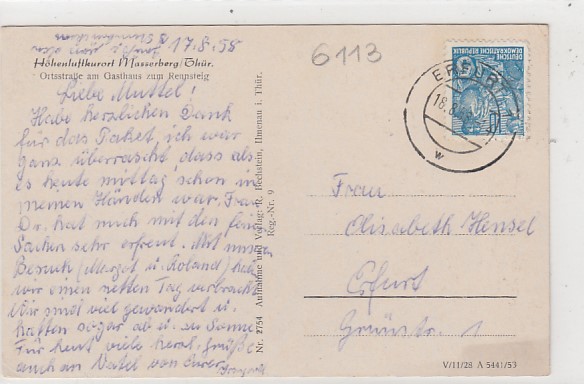 17.8.58
Höhenluftkurort Masserberg/Thür.
Ortsstraße am Gasthaus zum Rennsteig
Liebe Muttel!
Habe herzlichen Dank
für das Paket, ich war
ganz überrascht, dass als
es heute mittag schon in
meinen Händen war. Frau
Dr. hat mich mit den fein
Sachen sehr erfreut. Mit unsrem
Besuch (Margot u. Roland) hab
wir einen netten Tag verbracht.
Wir sind viel gewandert u.
hatten sogar ab u. zu Sonne.
Für heut viele herzl. Grüße
auch an Vatel von Eurer
Nr. 2754 Aufnahme und Verlag: R. Bechstein, Ilmenau i. Thür.
Reg.-Nr. 9
6113
DEUTSCHE
DEMOKRATISCHE REPUBLIK
ERFURT
18.8.
w
Frau
Elisabeth Hensel
Erfurt
Grünstr. 1
V/11/28 A 5441/53